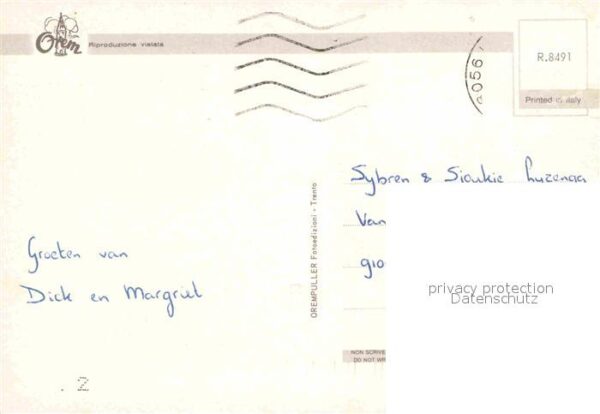 Orem
Riproduzione vietata
R.8491
Printed in Italy
Sybren & Sioukie
Van
Groeten van
Dick en Margriet
OREMPULLER Fotoedizioni - Trento
privacy protection
Datenschutz
NON SCRIVE
DO NOT WR
2